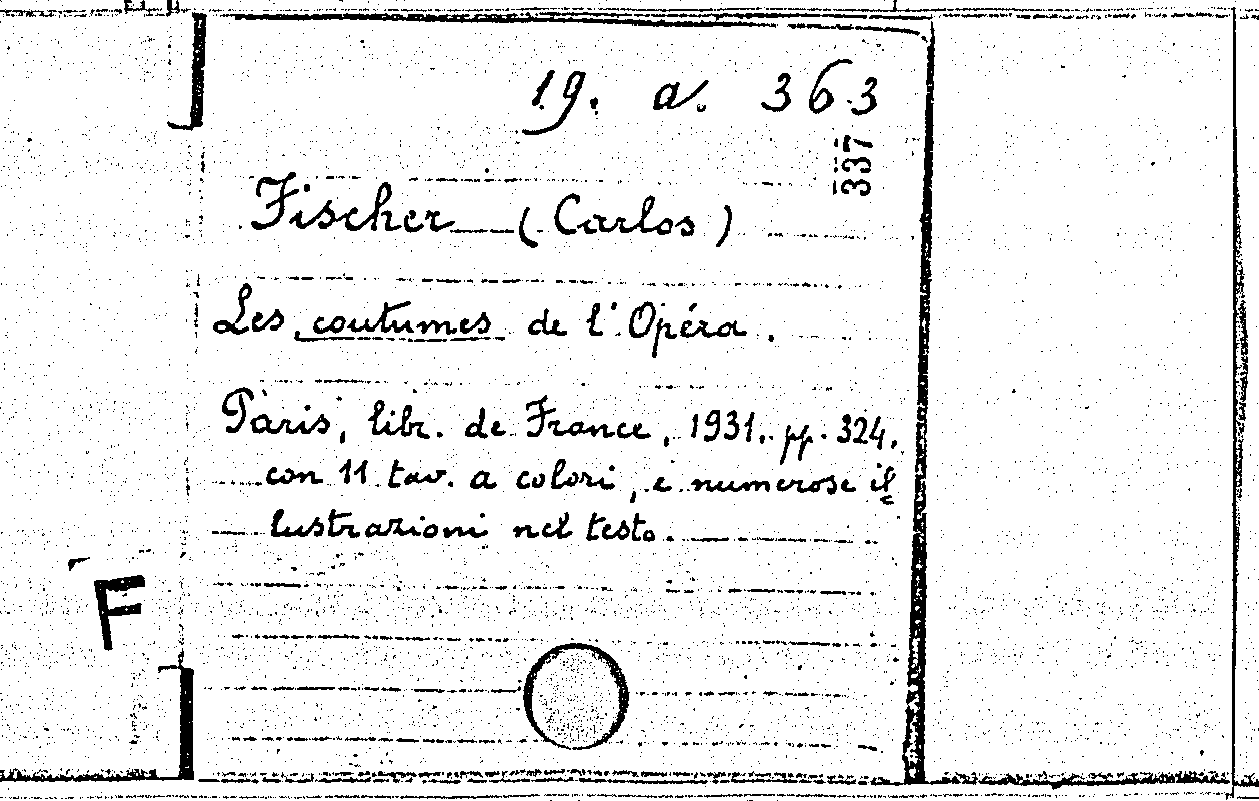 19. a. 363
337
Fischer (Carlos)
Les coutumes de l'Opéra.
Paris, libr. de France, 1931. pp. 324.
con 11 tav. a colori, e numerose il
lustrazioni nel testo.
F